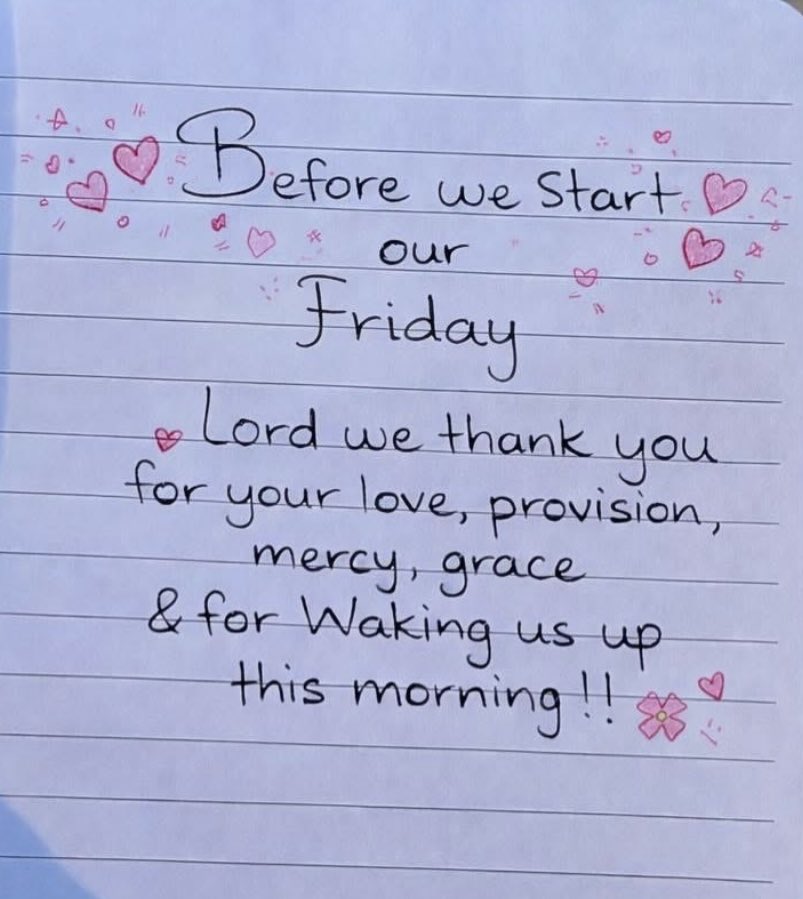 Before we Start
our
Friday
Lord we thank you
for your love, provision,
mercy, grace
& for Waking us up
this morning!!